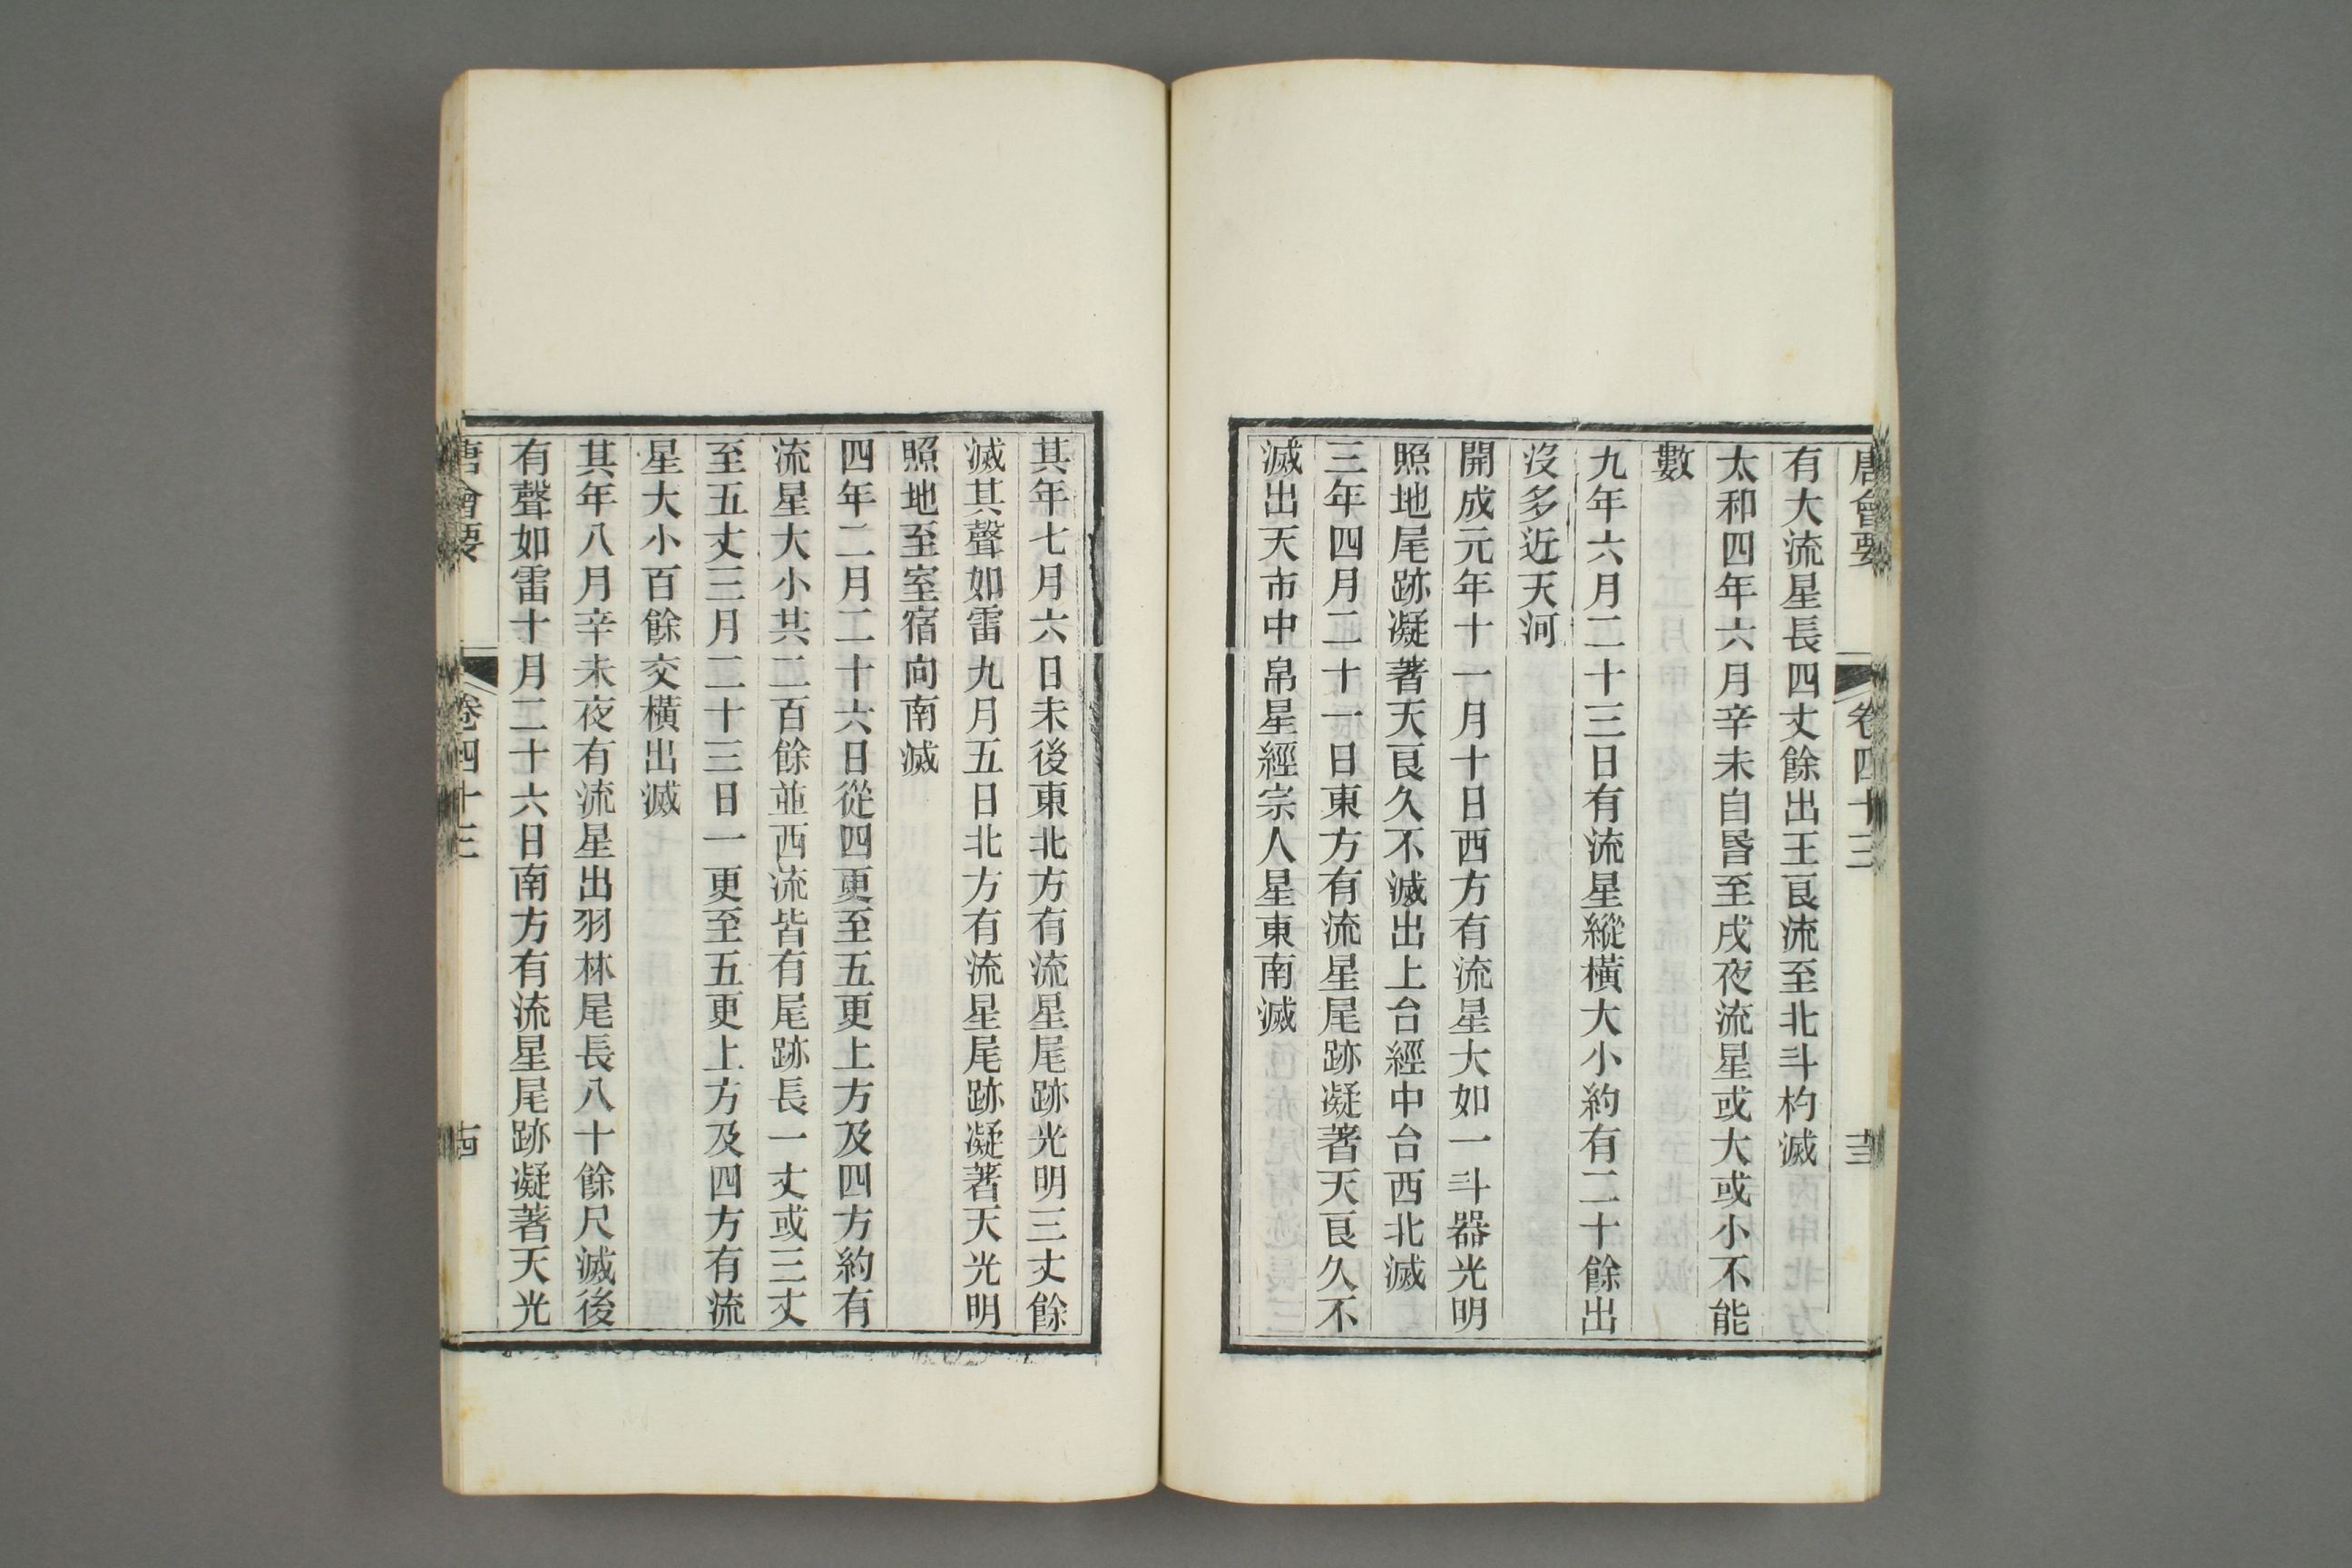 唐會要 卷四十三 十三
有大流星長四丈餘出王良流至北斗杓滅
太和四年六月辛未自昏至戌夜流星或大或小不能
數
九年六月二十三日有流星縱橫大小約有二十餘出
沒多近天河
開成元年十一月十日西方有流星大如一斗器光明
照地尾跡凝著天良久不滅出上台經中台西北滅
三年四月二十一日東方有流星尾跡凝著天良久不
滅出天市中帛星經宗人星東南滅
其年七月六日未後東北方有流星尾跡光明三丈餘
滅其聲如雷九月五日北方有流星尾跡凝著天光明
照地至室宿向南滅
四年二月二十六日從四更至五更上方及四方約有
流星大小共二百餘並西流皆有尾跡長一丈或三丈
至五丈三月二十三日一更至五更上方及四方有流
星大小百餘交橫出滅
其年八月辛未夜有流星出羽林尾長八十餘尺滅後
有聲如雷十月二十六日南方有流星尾跡凝著天光
唐會要 卷四十三 十四